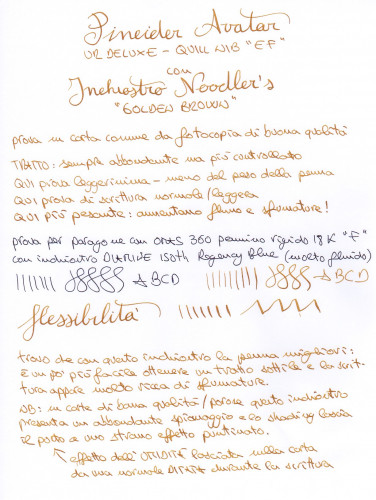 Pineider Avatar
UR DELUXE - QUILL NIB "EF"
con
Inchiostro Noodler's
"GOLDEN BROWN"
prova su carta comune da fotocopia di buona qualità
TRATTO: sempre abbondante ma più controllato
QUI prova leggerissima - meno del peso della penna
QUI prova di scrittura normale/leggera
QUI più pesante: aumentano flusso e sfumature!
prova per paragone con OMAS 360 pennino rigido 18K "F"
con inchiostro DIAMINE 150th Regency Blue (molto fluido)
ABCD ABCD
flessibilità
trovo che con questo inchiostro la penna migliori:
È un po' più facile ottenere un tratto sottile e la scrit-
tura appare molto ricca di sfumature.
NB: su carte di buona qualità/porose questo inchiostro
presenta un abbondante spiumaggio e lo shading lascia
il posto a uno strano effetto puntinato.
effetto dell'UMIDITÀ lasciata sulla carta
da una normale DITATA durante la scrittura